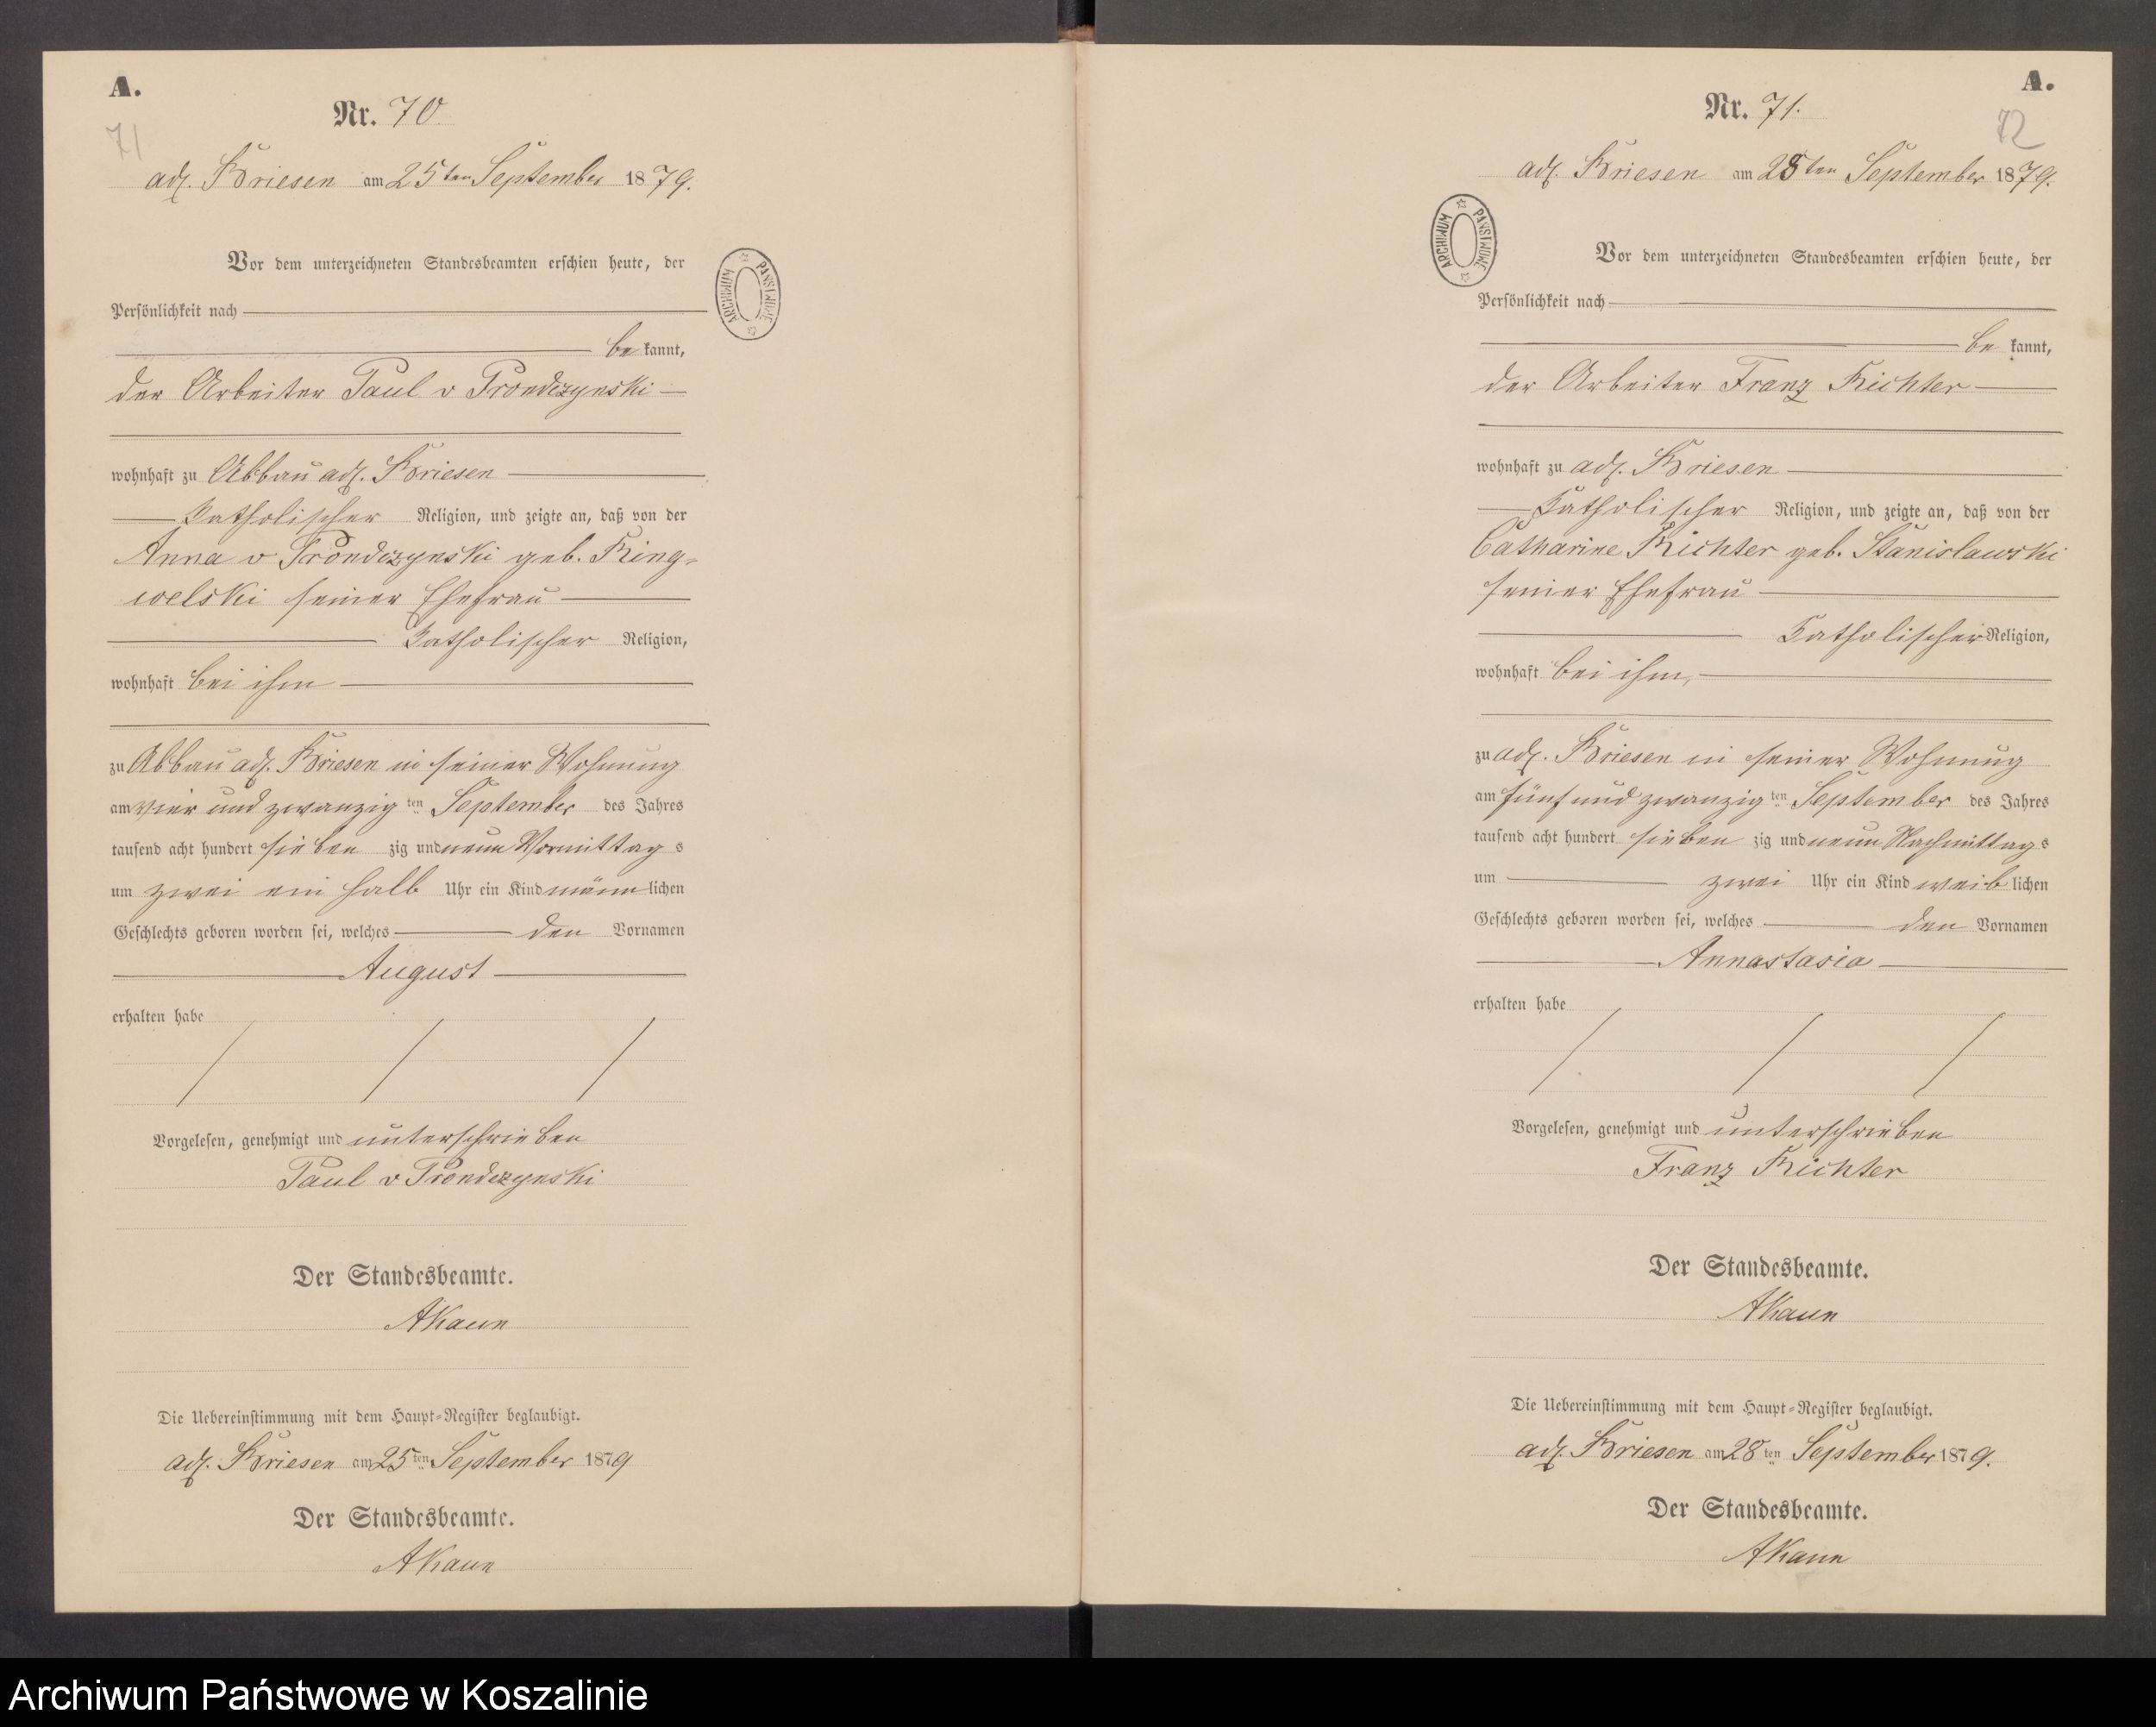 A.
Nr. 70.
71
adl. Briesen am 25ten September 1879.
Vor dem unterzeichneten Standesbeamten erschien heute, der
Persönlichkeit nach
bekannt,
der Arbeiter Paul v Prondczynski
wohnhaft zu Abbau adl. Briesen
Katholischer Religion, und zeigte an, daß von der
Anna v Prondczynski geb. Ring-
welski seiner Ehefrau
Katholischer Religion,
wohnhaft bei ihm
zu Abbau adl. Briesen in seiner Wohnung
am vier und zwanzig ten September des Jahres
tausend acht hundert sieben zig und neun Vormittags
um zwei ein halb Uhr ein Kind männlichen
Geschlechts geboren worden sei, welches den Vornamen
August
erhalten habe
Vorgelesen, genehmigt und unterschrieben
Paul v Prondczynski
Der Standesbeamte.
AKaun
Die Uebereinstimmung mit dem Haupt-Register beglaubigt.
adl. Briesen am 25ten September 1879
Der Standesbeamte.
AKaun
ARCHIWUM PAŃSTWOWE
A.
Nr. 71.
72
adl. Briesen am 28ten September 1879.
ARCHIWUM PAŃSTWOWE
Vor dem unterzeichneten Standesbeamten erschien heute, der
Persönlichkeit nach
be kannt,
der Arbeiter Franz Richter
wohnhaft zu adl. Briesen
Katholischer Religion, und zeigte an, daß von der
Catharine Richter geb. Stanislawski
seiner Ehefrau
Katholischer Religion,
wohnhaft bei ihm,
zu adl. Briesen in seiner Wohnung
am fünf und zwanzig ten September des Jahres
tausend acht hundert sieben zig und neun Nachmittags
um zwei Uhr ein Kind weiblichen
Geschlechts geboren worden sei, welches den Vornamen
Annastasia
erhalten habe
Vorgelesen, genehmigt und unterschrieben
Franz Richter
Der Standesbeamte.
AKaun
Die Uebereinstimmung mit dem Haupt-Register beglaubigt.
adl. Briesen am 28ten September 1879.
Der Standesbeamte.
AKaun
Archiwum Państwowe w Koszalinie